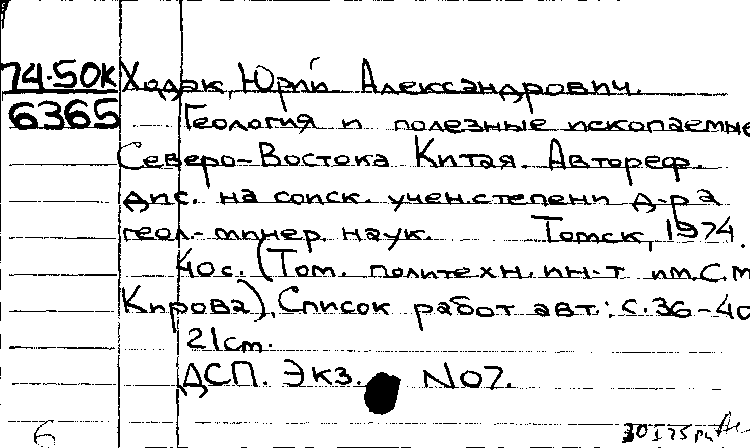 74-50К Ходак, Юрий Александрович.
6365 Геология и полезные ископаемые
Северо-Востока Китая. Автореф.
дис. на соиск. учен.степени д-ра
геол.-минер. наук. Томск, 1974.
40с. (Том. политехн. ин-т им.С.М
Кирова). Список работ авт.: с.36-40
21см.
ДСП. Экз. №07.
6 30 I 75